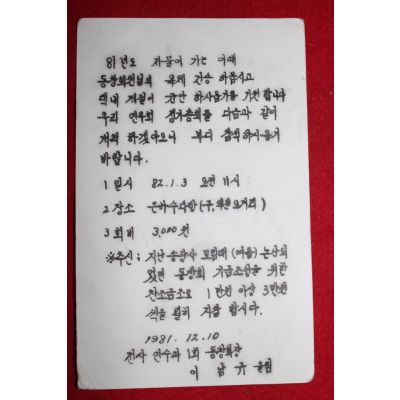 81년도 저물어 가는 이때
동창회원님의 옥체 건승 하옵시고
댁내 제절이 균안 하시옵기를 기원합니다
우리 연우회 정기총회를 다음과 같이
개최 하겠아오니 부디 참석하시옵기
바랍니다.
1. 일시 82.1.3 오전 11시
2. 장소 은하수다방 (구, 오거리)
3 회비 3,000원
※주신; 지난 송광사 모임때 (여름) 논상되
었던 동창회 기금조성을 위한
찬조금조로 1만원 이상 3만원
씩을 필히 지참 합시다.
1981. 12. 10
전사 연수과 1회 동창회장
이 남 규 올림